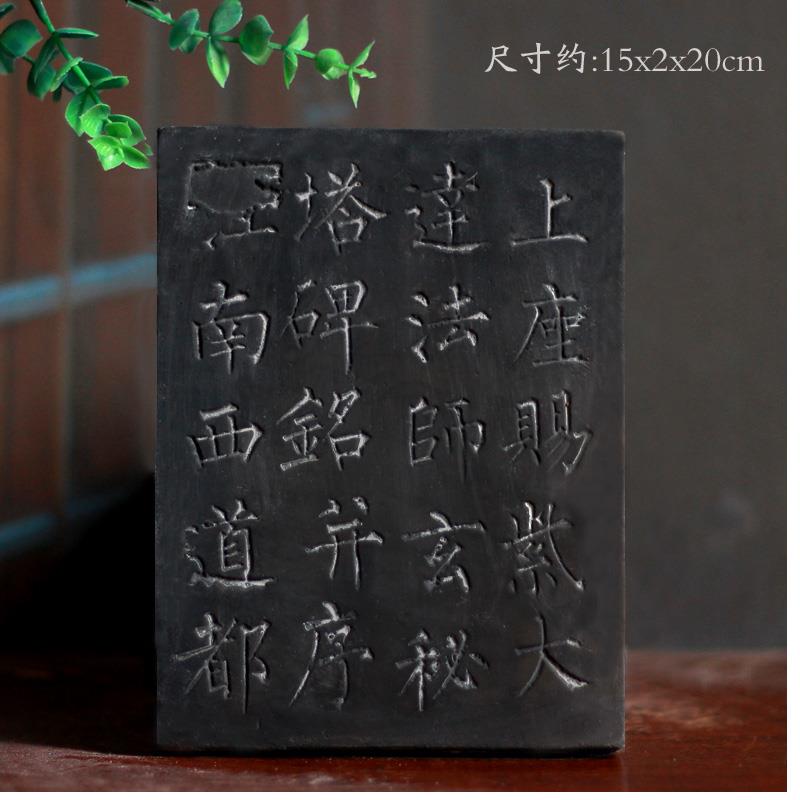 尺寸约:15x2x20cm
上座賜紫大
達法師玄秘
塔碑銘并序
江南西道都